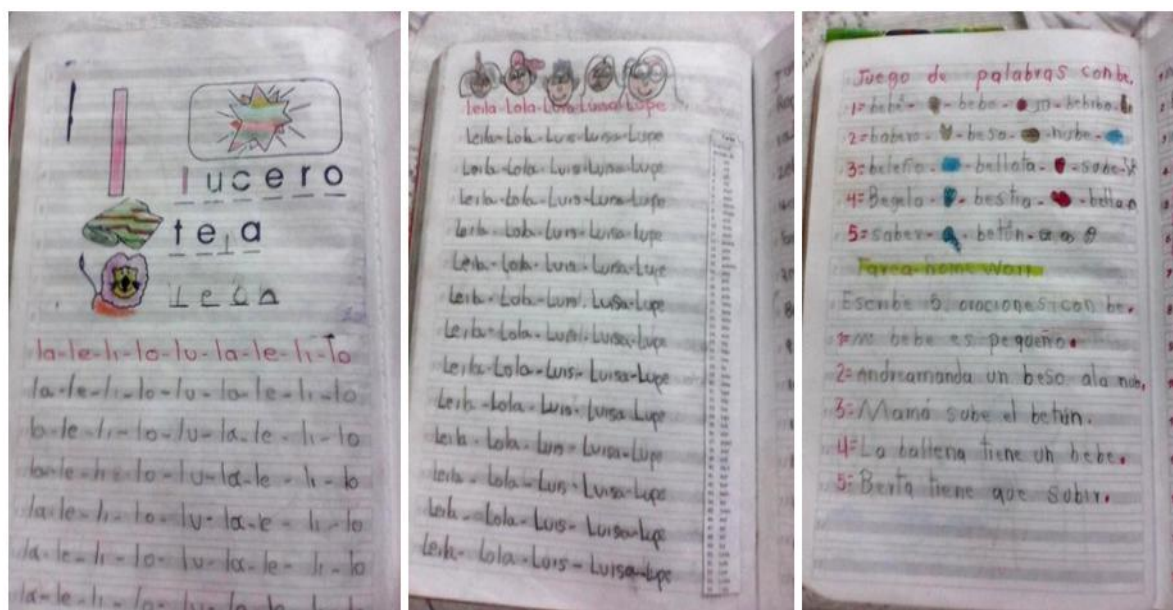 l
lucero
tela
León
la-le-li-lo-lu-la-le-li-lo
la-le-li-lo-lu-la-le-li-lo
la-le-li-lo-lu-la-le-li-lo
la-le-li-lo-lu-la-le-li-lo
la-le-li-lo-lu-la-le-li-lo
la-le-li-lo-lu-la-le-li-lo
la-le-li-lo-lu-la
Leila-Lola-Luis-Luisa-Lupe
Leila-Lola-Luis-Luisa-Lupe
Leila-Lola-Luis-Luisa-Lupe
Leila-Lola-Luis-Luisa-Lupe
Leila-Lola-Luis-Luisa-Lupe
Leila-Lola-Luis-Luisa-Lupe
Leila-Lola-Luis-Luisa-Lupe
Leila-Lola-Luis-Luisa-Lupe
Leila-Lola-Luis-Luisa-Lupe
Leila-Lola-Luis-Luisa-Lupe
Leila-Lola-Luis-Luisa-Lupe
Leila-Lola-Luis-Luisa-Lupe
Leila-Lola-Luis-Luisa-Lupe
Leila-Lola-Luis-Luisa-Lupe
Juego de palabras con be.
1=bebé- -bebe-
2=babero- -beso- -nube-
3=beleño- -bellota- -sabe-
4= -bestia-
5=saber- -betún-
Tarea-home
Escribe 5 oraciones con be.
1=mi bebe es pequeño.
2=Andreamanda un beso ala
3=Mamá sube el betún.
4=La ballena tiene un bebe.
5=Berta tiene que subir.